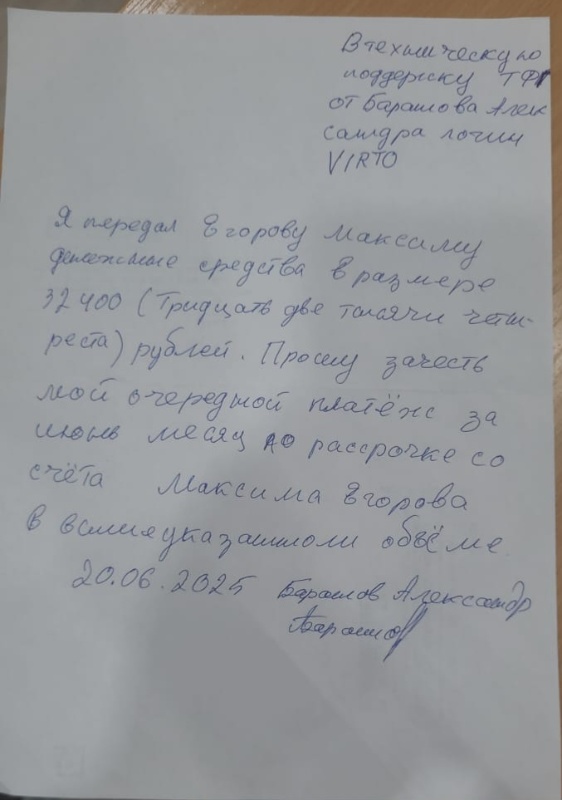 В техническую
поддержку ТФГ
от Баранова Алек
сандра логин
VIRTO
Я передал Егорову Максиму
денежные средства в размере
32 400 (Тридцать две тысячи четы-
реста) рублей. Прошу зачесть
мой очередной платёж за
июнь месяц по рассрочке со
счёта Максима Егорова
в вышеуказанном объёме.
20.06.2025 Баранов Александр